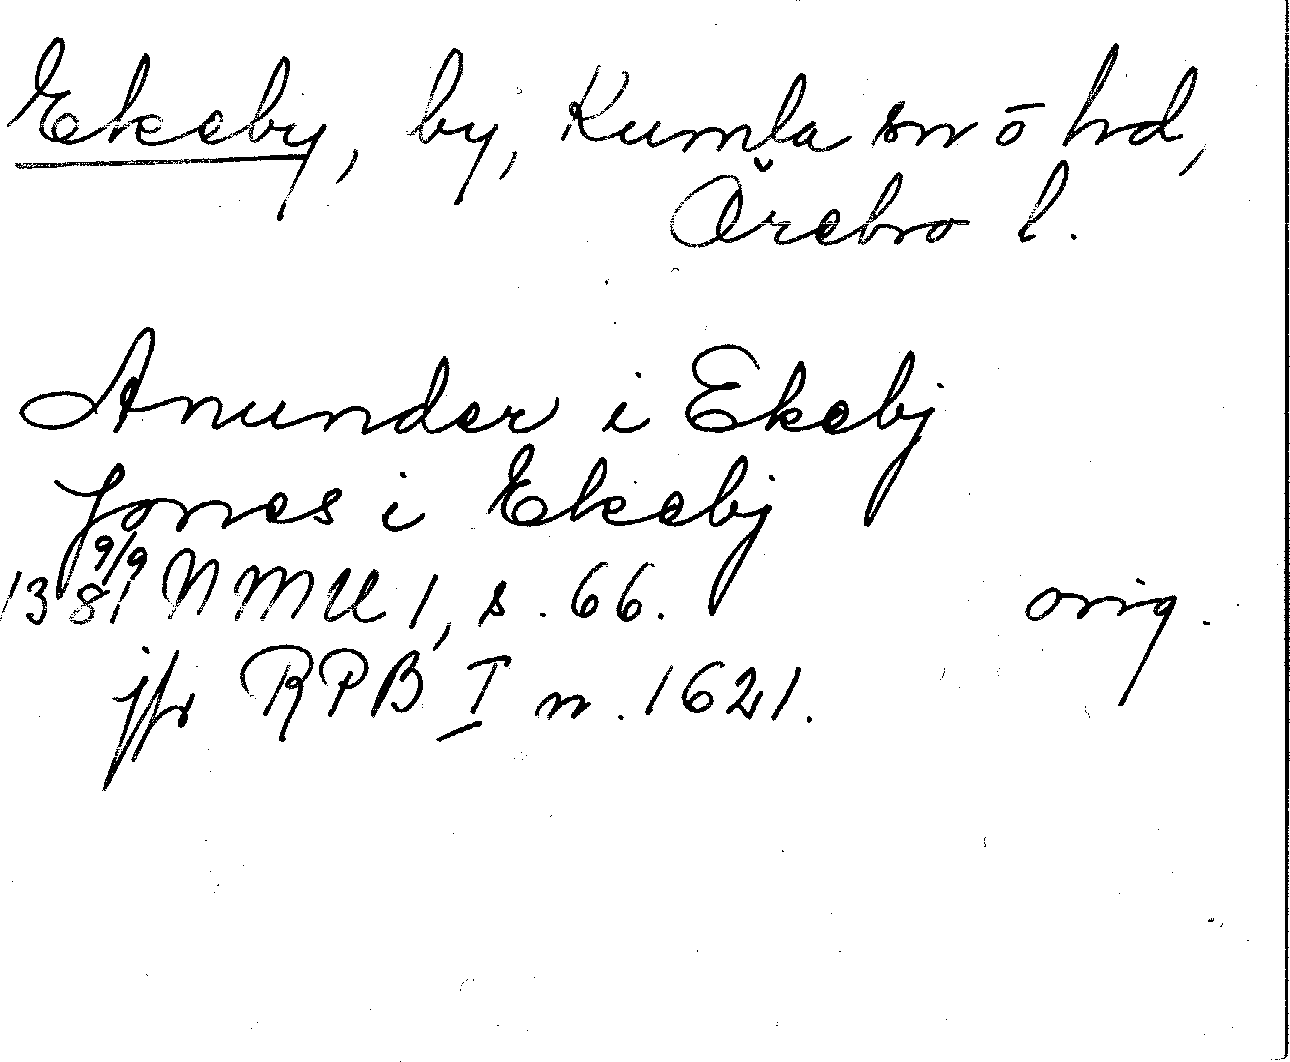 Ekeby, by, Kumla sn o hd,
Örebro l.
Anunder i Ekebj
Jones i Ekebj
1381 9/9 NMU 1, s. 66. orig.
jfr RPB I n. 1621.